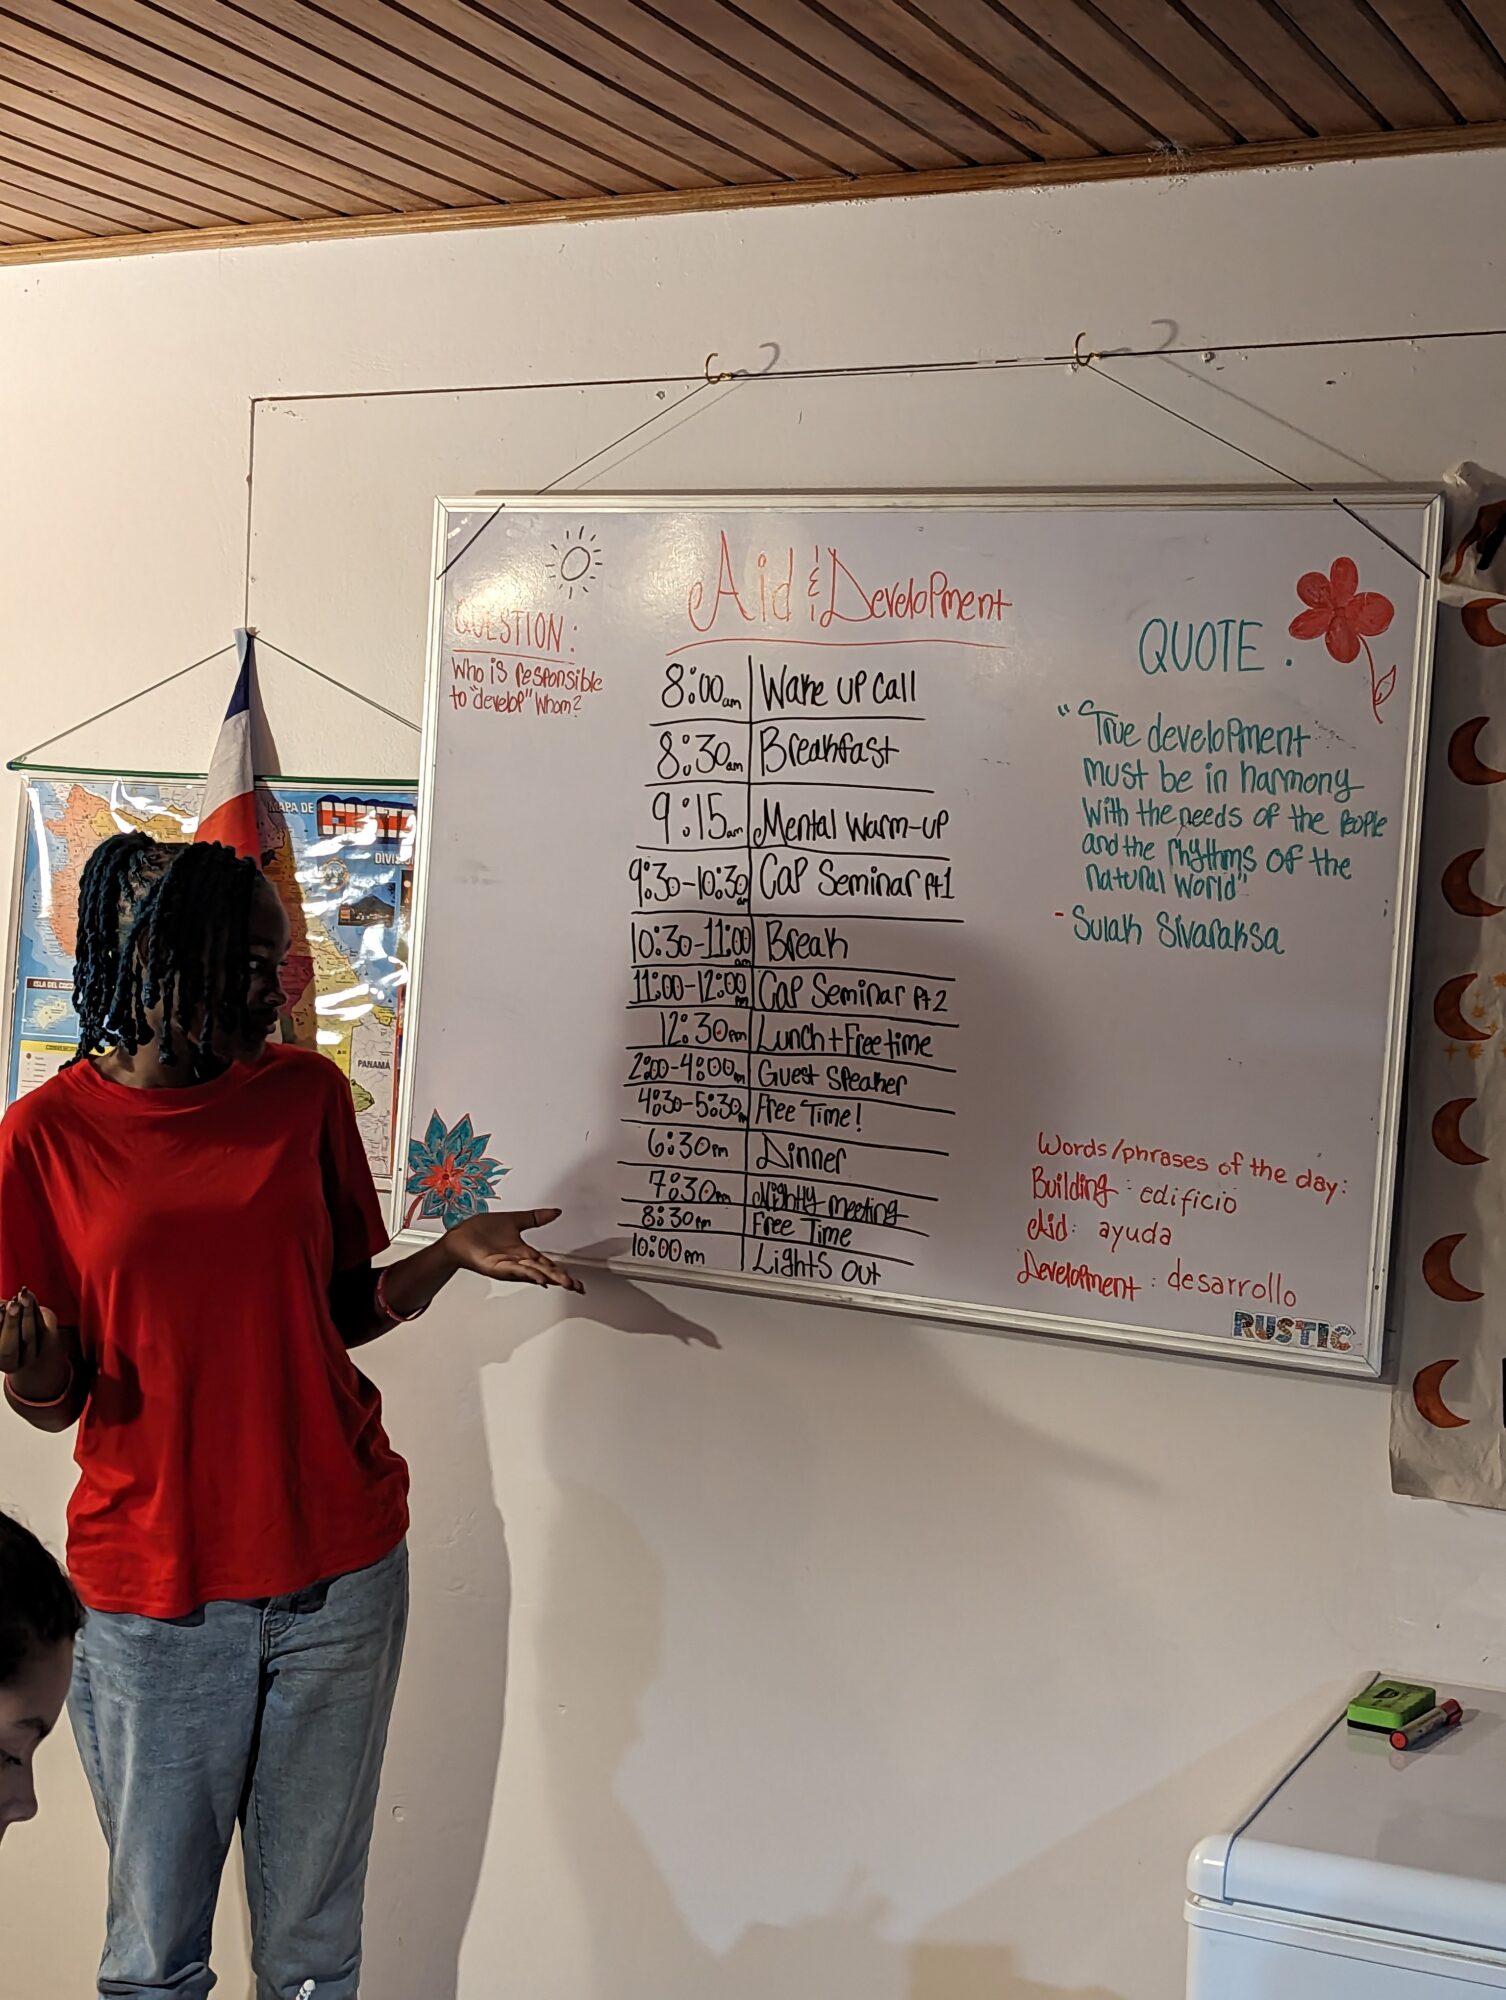 Aid & Development
QUESTION:
Who is responsible
to "develop" whom?
8:00am Wake up call
8:30am Breakfast
9:15am Mental Warm-up
9:30-10:30am Cap Seminar pt1
10:30-11:00am Break
11:00-12:00pm Cap Seminar pt2
12:30pm Lunch + Free time
2:00-4:00pm Guest Speaker
4:30-5:30pm Free Time!
6:30pm Dinner
7:30pm Nightly meeting
8:30pm Free Time
10:00pm Lights Out
QUOTE:
"True development
must be in harmony
with the needs of the people
and the rhythms of the
natural world"
- Sulak Sivaraksa
Words/phrases of the day:
Building: edificio
Aid: ayuda
Development: desarrollo
RUSTIC
MAPA DE
ISLA DEL COCO
PANAMÁ